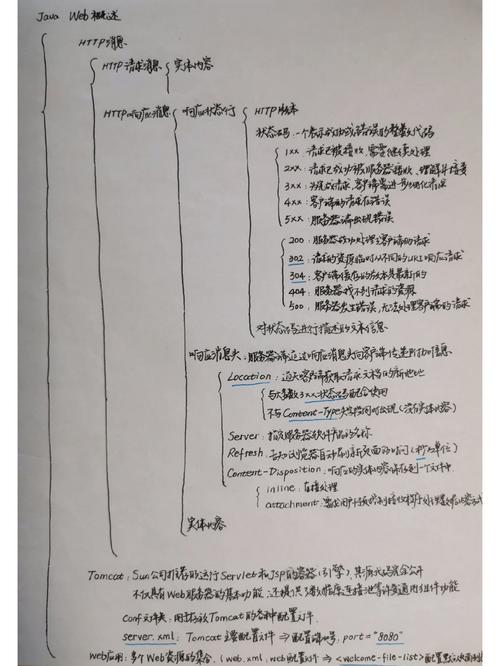 Java Web概述
HTTP消息
HTTP请求消息 实体内容
HTTP响应消息 响应状态行 HTTP版本
状态码:一个表示成功或错误的整数代码
1xx:请求已被接收,需要继续处理
2xx:请求已成功被服务器接收、理解并接受
3xx:为完成请求,客户端需进一步细化请求
4xx:客户端的请求有错误
5xx:服务器端出现错误
200:服务器成功处理了客户端的请求
302:请求的资源临时从不同的URI响应请求
304:客户端缓存的版本是最新的
404:服务器找不到请求的资源
500:服务器发生错误,无法处理客户端的请求
对状态码进行描述的文本信息
响应消息头:服务器端通过响应消息头向客户端传递附加信息
Location:通知客户端获取请求文档的新地址
与大多数3xx状态码配合使用
不与Content-Type头字段同时出现(没有实体内容)
Server:指定服务器软件产品的名称
Refresh:告知浏览器自动刷新页面的时间(秒为单位)
Content-Disposition:响应的实体内容保存到一个文件中
inline:直接处理
attachment:要求用户干预控制接收程序处理
实体内容
Tomcat:Sun公司推荐的运行Servlet和JSP的容器(引擎),其源代码完全公开
不仅具有Web服务器的基本功能,还提供了数据库连接池等许多通用组件功能
conf文件夹:用于存放Tomcat的各种配置文件
server.xml:Tomcat主要配置文件⇒配置端口号,port="8080"
Web应用:多个Web资源的集合.(web.xml:web配置文件⇒<welcome-file-list>配置默认页面